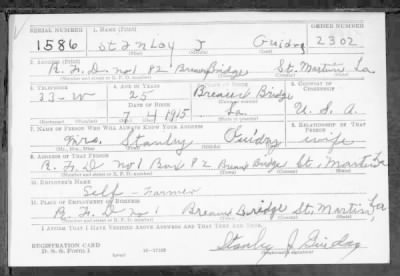 SERIAL NUMBER 1. NAME (Print) ORDER NUMBER
1586 Stanley J Guidry 2302
2. ADDRESS (Print)
R. F. D. no 1 82 Breaux Bridge St. Martin La
3. TELEPHONE 4. AGE IN YEARS 5. PLACE OF BIRTH 6. COUNTRY OF CITIZENSHIP
33-W 25 Breaux Bridge
DATE OF BIRTH
7 4 1915 La U. S. A.
7. NAME OF PERSON WHO WILL ALWAYS KNOW YOUR ADDRESS 8. RELATIONSHIP OF THAT PERSON
Mrs. Stanley Guidry wife
(Mr., Mrs., Miss)
9. ADDRESS OF THAT PERSON
R. F. D no 1 Box 82 Breaux Bridge St. Martin La
10. EMPLOYER'S NAME
Self - Farmer
11. PLACE OF EMPLOYMENT OR BUSINESS
R. F. D no 1 Breaux Bridge St. Martin, La
I AFFIRM THAT I HAVE VERIFIED ABOVE ANSWERS AND THAT THEY ARE TRUE.
REGISTRATION CARD
D. S. S. Form 1
Stanley J. Guidry